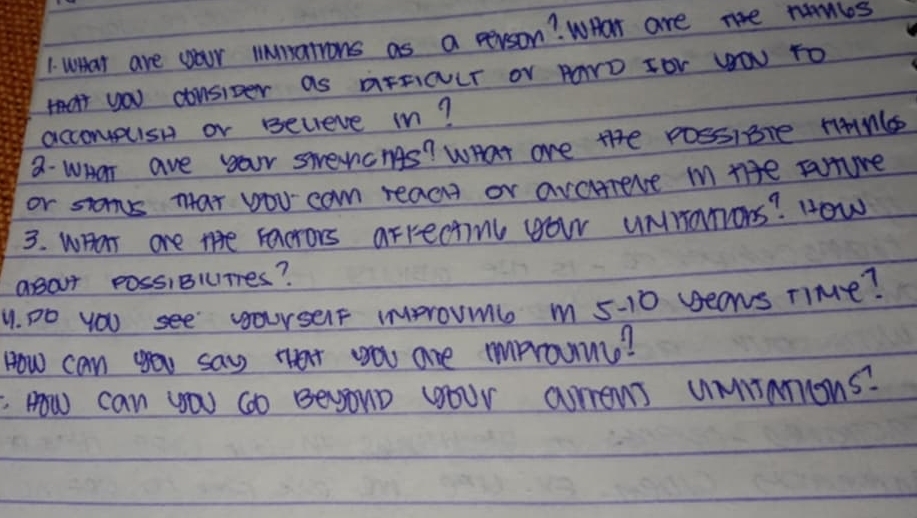 1. What are your limitations as a person? What are the things
that you consider as difficult or hard for you to
accomplish or believe in?
2. What are your strengths? What are the possible things
or status that you can reach or archieve in the future
3. What are the factors affecting your limitations? How
about possibilities?
4. Do you see yourself improving in 5-10 years time?
How can you say that you are improving?
. How can you go beyond your current limitations?